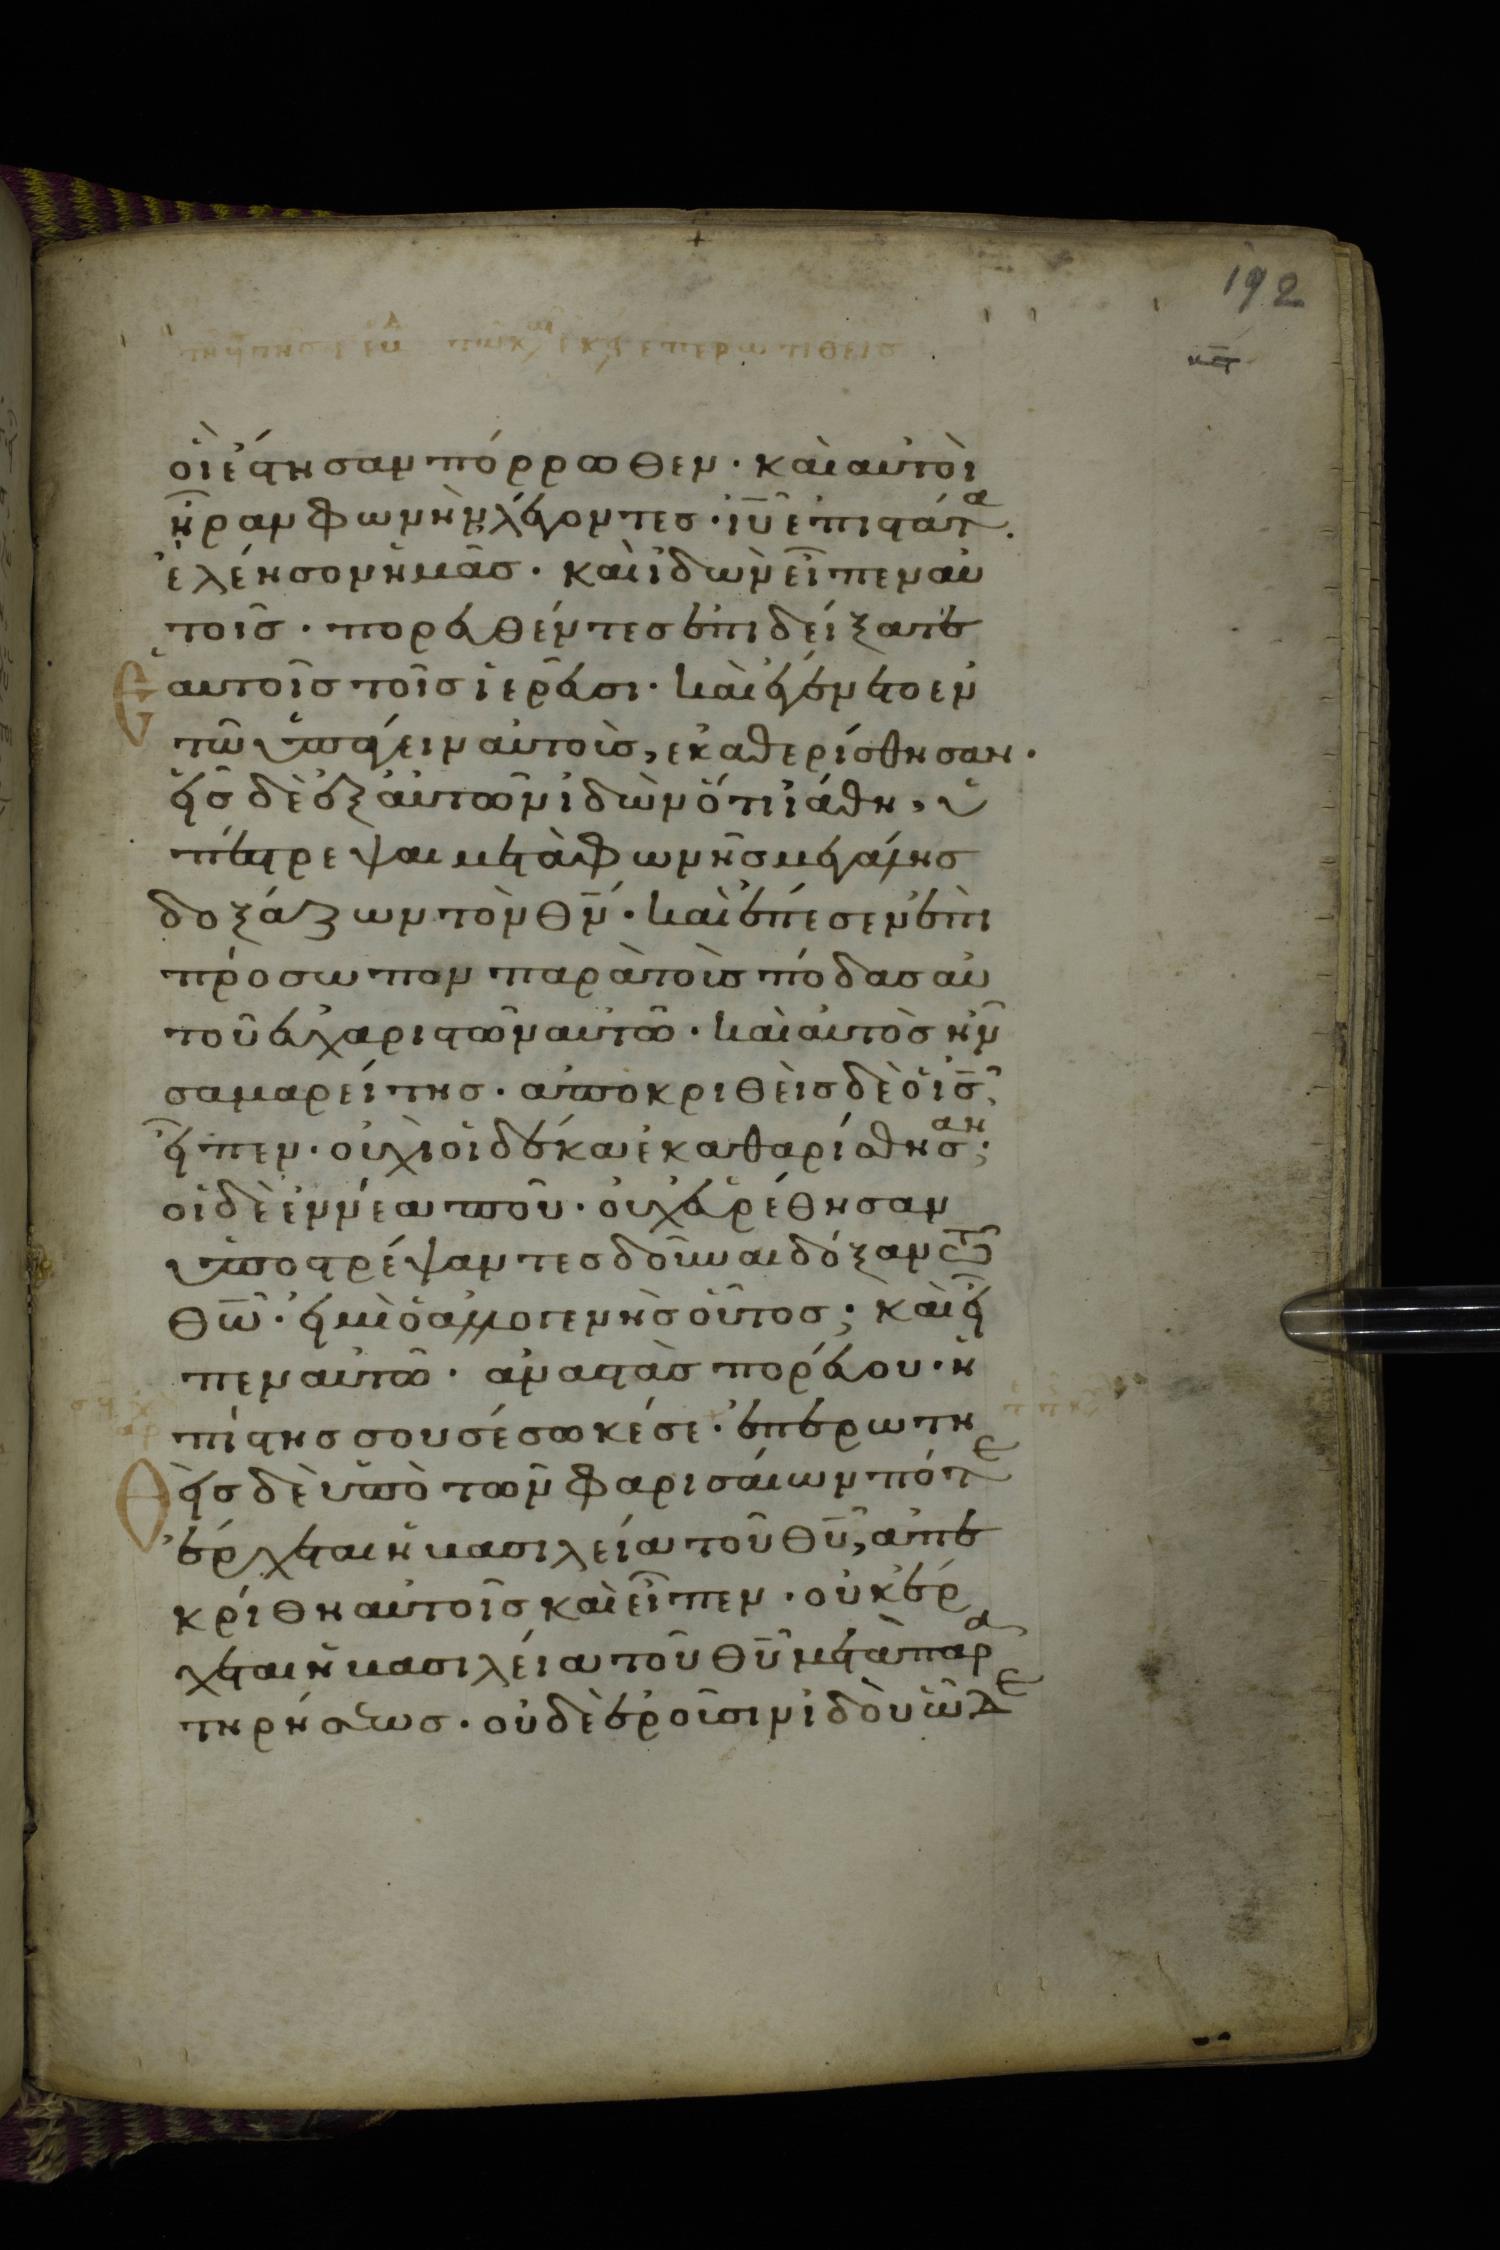 192
οἱ ἔστησαν πόρρωθεν · καὶ αὐτοὶ
ἦραν φωνὴν λέγοντες · ιῦ ἐπιστάτα ·
ἐλέησον ἡμᾶς · καὶ ἰδὼν εἶπεν αὐ
τοῖς · πορευθέντες ἐπιδείξατε
ἑαυτοῖς τοῖς ἱερεῦσι · καὶ ἐγένετο ἐν
τῶ ὑπάγειν αὐτοὺς, ἐκαθερίσθησαν ·
εἷς δὲ ἐξ αὐτῶν ἰδὼν ὅτι ἰάθη, ὑ
πέστρεψαι μετὰ φωνῆς μεγάλης
δοξάζων τὸν θν · καὶ ἔπεσεν ἐπὶ
πρόσωπον παρὰ τοὺς πόδας αὐ
τοῦ εὐχαριστῶν αὐτῶ · καὶ αὐτὸς ἦν
σαμαρείτης · ἀποκριθεὶς δὲ ὁ ις,
εἶπεν · οὐχὶ οἱ δέκα ἐκαθαρίσθησαν ;
οἱ δὲ ἐννέα ποῦ · οὐχ εὑρέθησαν
ὑποστρέψαντες δοῦναι δόξαν τῶ
θω · εἰ μὶ ὁ ἀλλογενὴς οὗτος ; καὶ εἶ
πεν αὐτῶ · ἀναστὰς πορεύου · ἡ
πίστης σου σέσωκέ σε · ἐπερωτη
θεὶς δὲ ὑπὸ τῶν φαρισαίων πότε
ἔρχεται ἡ βασιλεία τοῦ θυ, ἀπε
κρίθη αὐτοῖς καὶ εἶπεν · οὐκ ἔρ
χεται ἡ βασιλεία τοῦ θυ μετὰ παρα
τηρήσεως · οὐδὲ ἐροῦσιν ἰδοὺ ὧδε